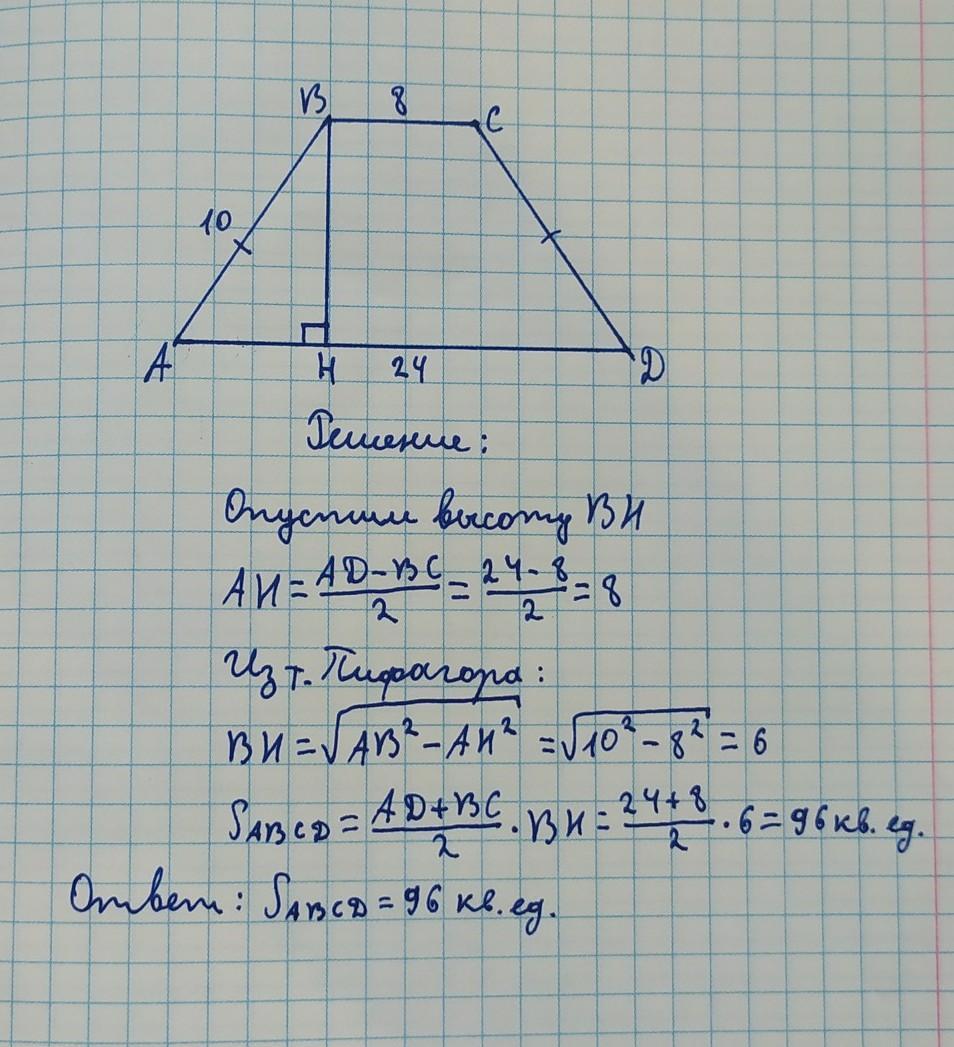 B 8 C
10
A H 24 D
Решение:
Опустим высоту BH
AH = (AD - BC)/2 = (24 - 8)/2 = 8
Из т. Пифагора:
BH = √(AB² - AH²) = √(10² - 8²) = 6
S_ABCD = (AD + BC)/2 · BH = (24 + 8)/2 · 6 = 96 кв. ед.
Ответ: S_ABCD = 96 кв. ед.